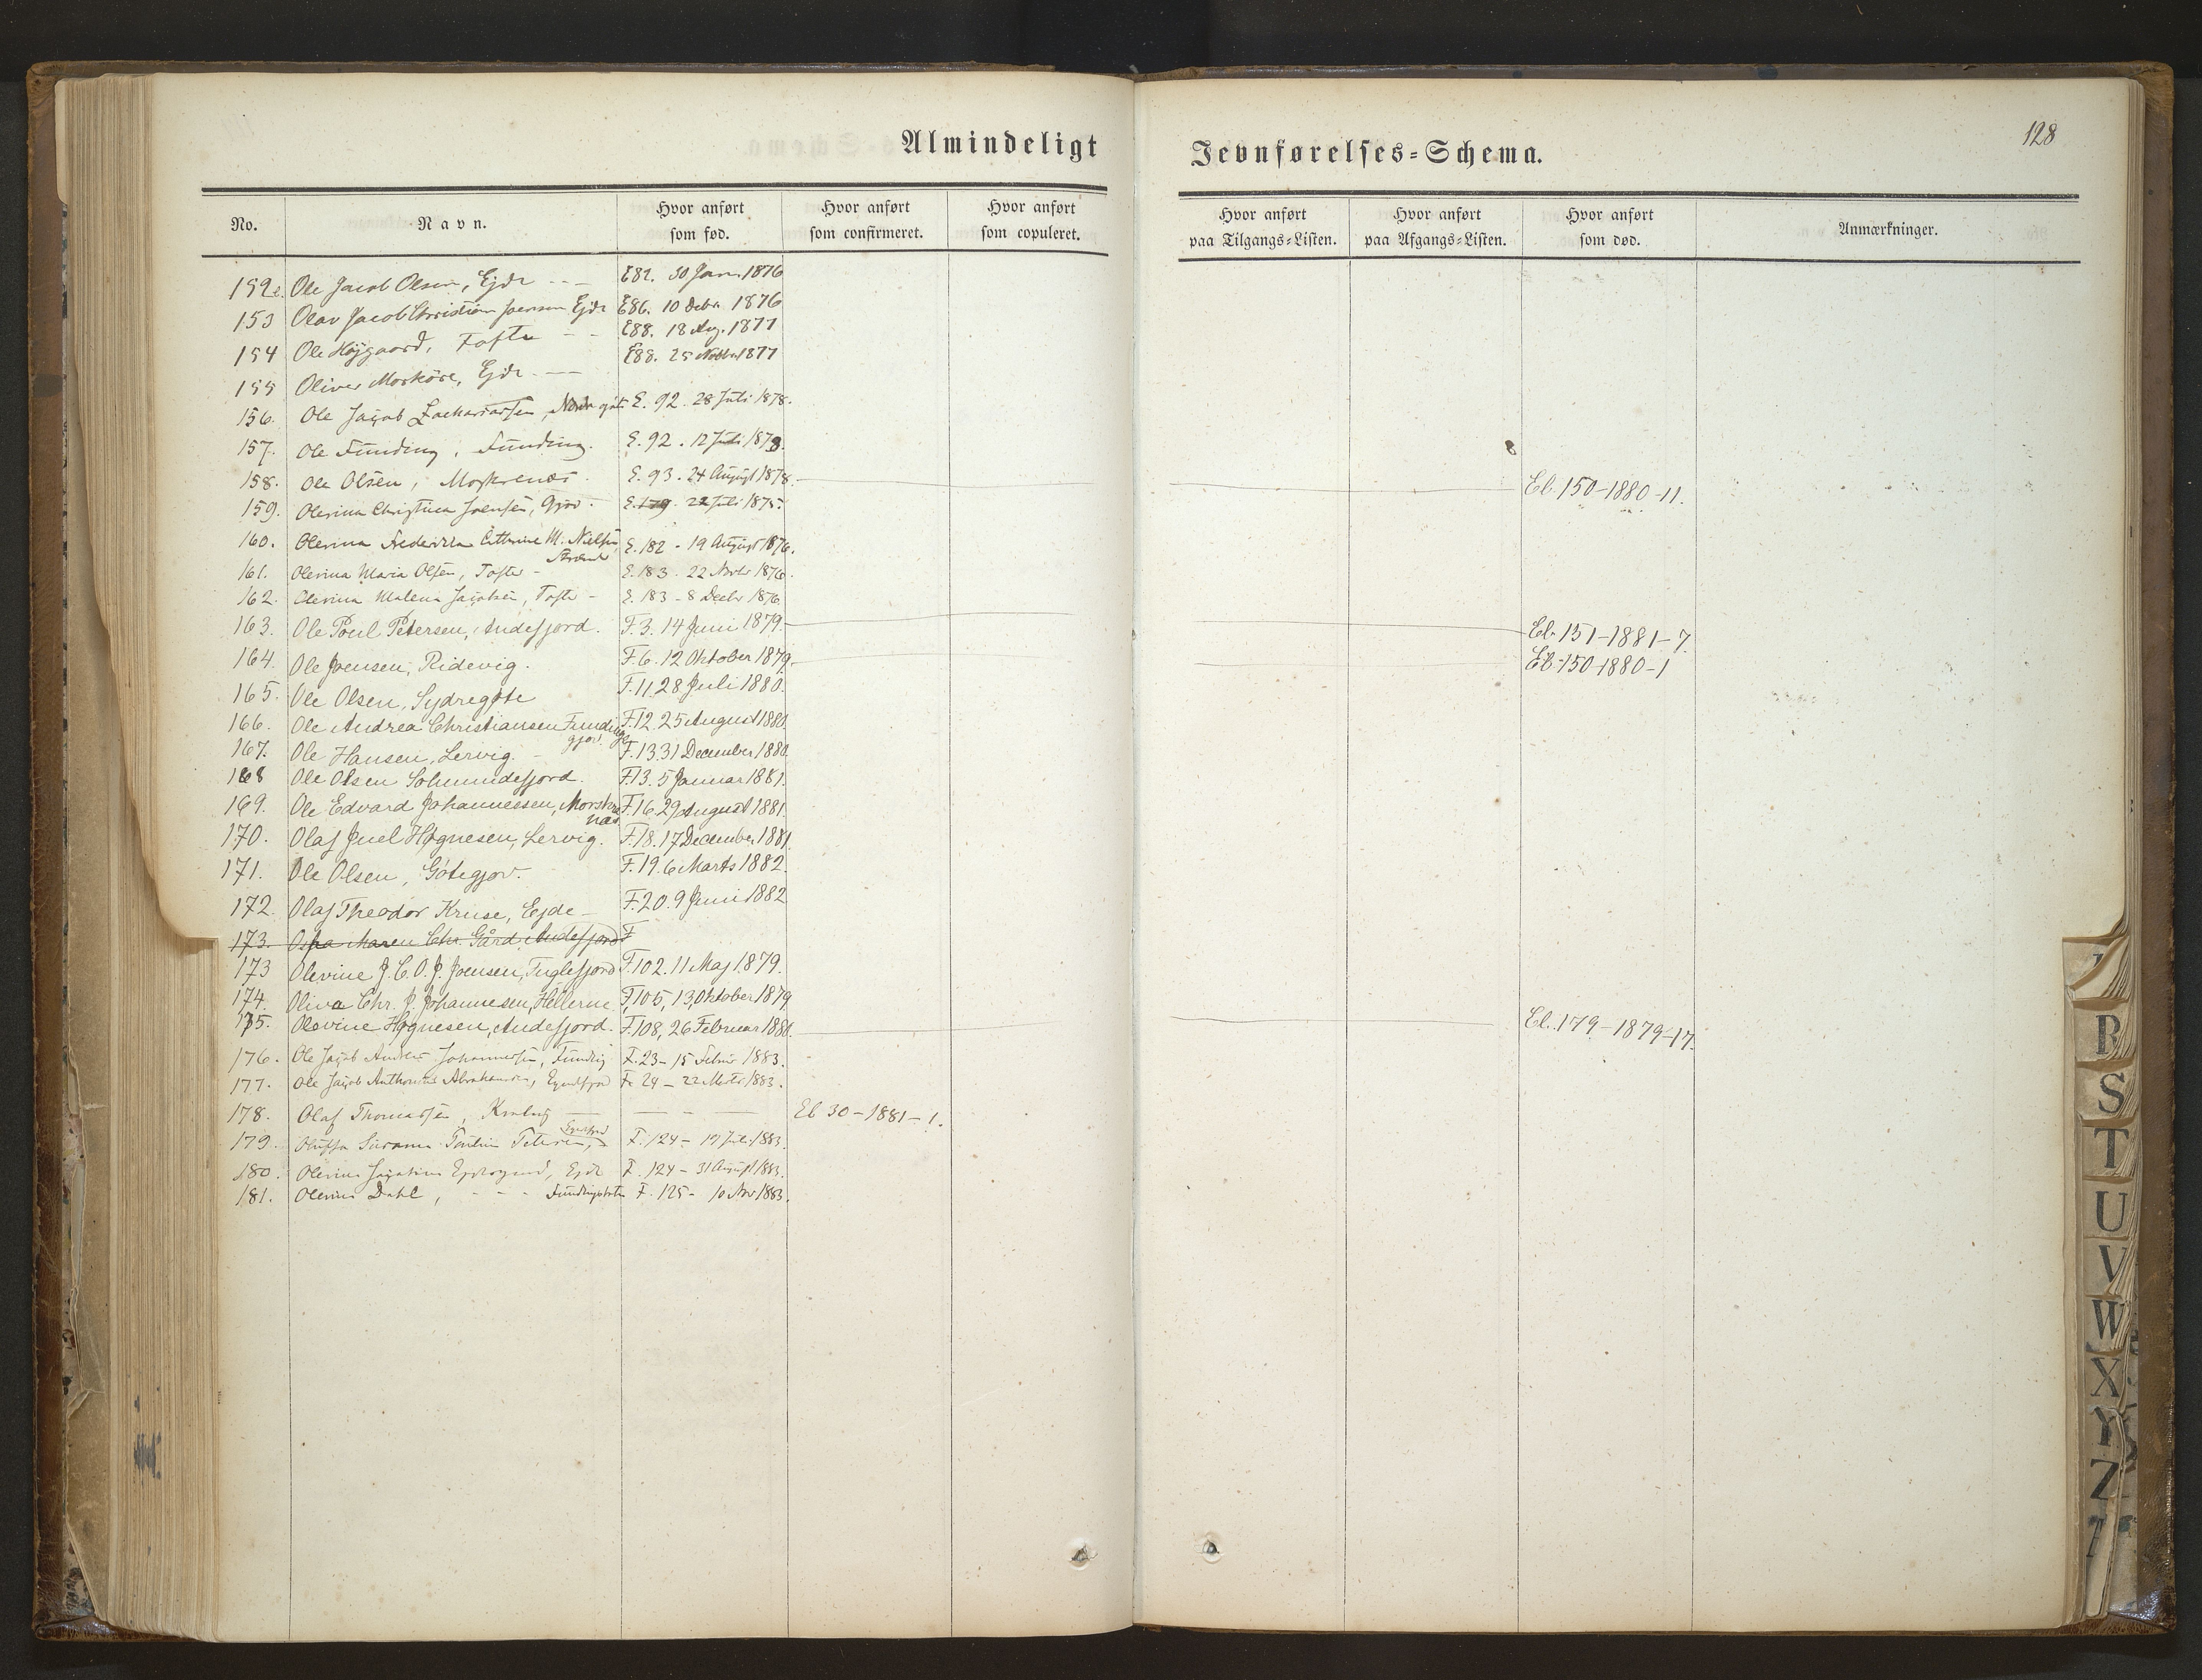 128
Almindeligt Jevnførelses=Schema.
No. Navn. Hvor anført som fød. Hvor anført som confirmeret. Hvor anført som copuleret. Hvor anført paa Tilgangs=Listen. Hvor anført paa Afgangs=Listen. Hvor anført som død. Anmærkninger.
152 Ole Jacob Olsen, Ejde - - - E82. 30 Jan. 1876
153 Olav Jacob Christian Joensen Ejde E86. 10 Debr 1876
154 Ole Højgaard, Tofte - - E88. 18 Aug. 1877
155 Oliver Morköre, Ejde - - E88. 25 Novbr 1877
156. Ole Jacob Zachariassen, E. 92. 28 Juli 1878.
157. Ole Funding, Funding. E. 92. 12 Juli 1878.
158. Ole Olsen, Morskrenæs. E. 93. 24 August 1878. El. 150-1880-11.
159. Olevina Christina Joensen, Gjov. E. 179. 22 Juli 1875.
160. Olevina Fredrikka Cathrine M. Nielsen, Strend E. 182 - 19 August 1876.
161. Olevina Maria Olsen, Tofte - E. 183. 22 Novbr 1876.
162. Olevina Malena Jacobsen, Tofte - E. 183 - 8 Decbr 1876
163. Ole Poul Petersen, Andefjord. F. 3. 14 Juni 1879. El. 151-1881-7.
164. Ole Joensen, Ridevig. F. 6. 12 Oktober 1879. El. 150-1880-1
165. Ole Olsen, Sydregøte F. 11. 28 Juli 1880.
166. Ole Andrea Christiansen Fundingsgjov. F. 12. 25 August 1880.
167. Ole Hansen, Lervig. - F. 13 31 December 1880.
168 Ole Olsen Solmundefjord. F. 13. 5 Januar 1881.
169. Ole Edvard Johannessen, Morskrenæs F. 16. 29 August 1881.
170. Olaf Juel Høgnesen, Lervig. F. 18. 17 December 1881
171. Ole Olsen, Gøtegjov. F. 19. 6 Marts 1882.
172. Olaf Theodor Kruse, Ejde - F. 20. 9 Juni 1882
173. Maren Chr. Gård, Andefjord F
173 Olevine J. C. O. J. Joensen, Fuglefjord F. 102. 11 Maj 1879.
174. Oliva Chr. J. Johannesen, Hellerne F. 105, 13 Oktober 1879
175. Olevine Høgnesen, Andefjord. F. 108, 26 Februar 1880. El. 179-1879-17.
176. Ole Jacob Andreas Johannessen, Funding F. 23 - 15 Febr. 1883.
177. Ole Jacob Anthonius Abrahamsen, F. 24 - 22 Marts 1883.
178. Olaf Thomassen, - - - El 30-1881-1.
179. Susanna Petersen, F. 124 - 1883.
180. Olevina Ejde F. 124 - 31 August 1883.
181. Olevina Dahl, - - - F. 125 - 10 Nov 1883.
R
S
T
U
V
W
X
Y
Z